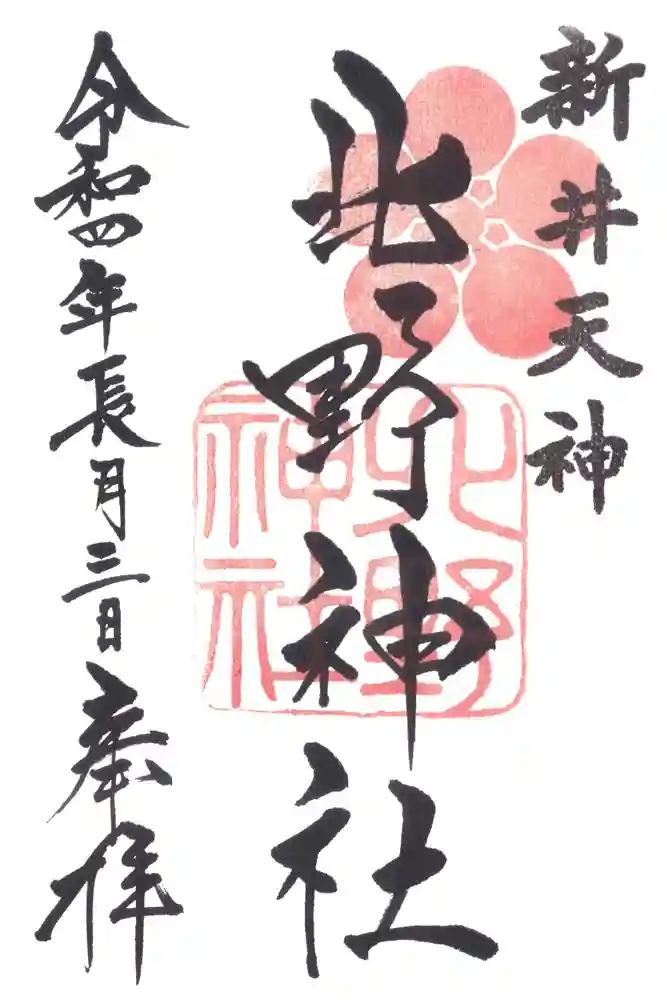 新井天神
北野神社
北野神社
令和四年長月三日奉拝